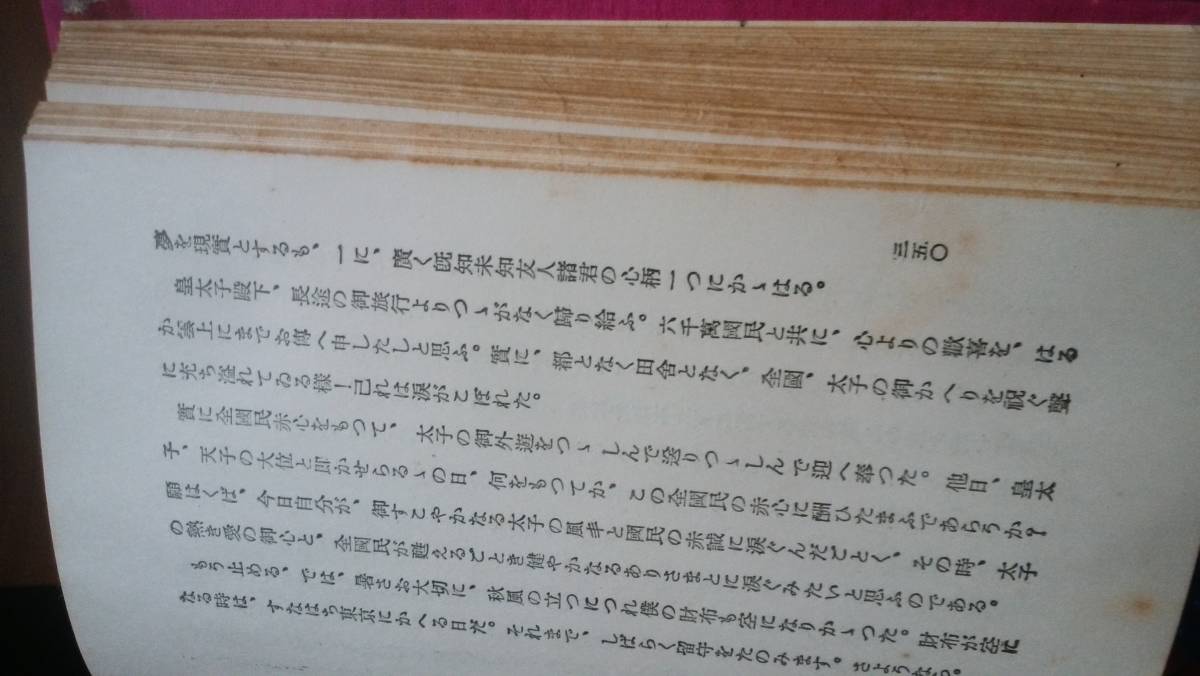 三五〇
夢を現實とするも、一に、廣く既知未知友人諸君の心柄一つにかゝはる。
皇太子殿下、長途の御旅行よりつゝがなく歸り給ふ。六千萬國民と共に、心よりの歡喜を、はる
か雲上にまでお傳へ申したしと思ふ。實に、都となく田舎となく、全國、太子の御かへりを祝ぐ聲
に充ち溢れてゐる樣!己れは涙がこぼれた。
實に全國民赤心をもつて、太子の御外遊をつゝしんで送りつゝしんで迎へ奉つた。他日、皇太
子、天子の大位と卽かせらるゝの日、何をもつてか、この全國民の赤心に酬ひたまふであらうか?
願はくば、今日自分が、御すこやかなる太子の風丰と國民の赤誠に涙ぐんだごとく、その時、太子
の熱き愛の御心と、全國民が甦えるごとき健やかなるありさまとに涙ぐみたいと思ふのである。
もう止める、では、暑さお大切に、秋風の立つにつれ僕の財布も空になりかゝつた。財布が空に
なる時は、すなはち東京にかへる日だ。それまで、しばらく留守をたのみます。さようなら。